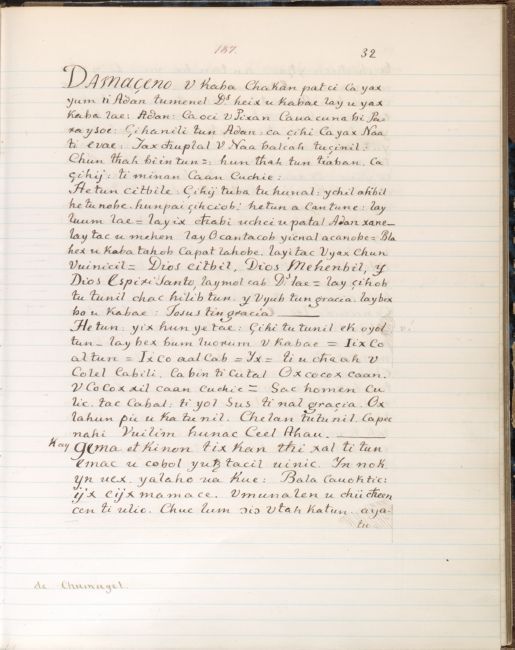 187. 32
DAMaçeno V Kaba Chakan pat ci Ca yax
yum ti Adan tumenel Ds heix u kabae lay u yax
Kaba lae: Adan: Ca oci V Pixan Caua cuna bi Pa-
raysoe: Çihanili tun Adan: ca çihi Ca yax Naa
ti evae: Jax chuplal V Naa balcah tuçinil:
Chun thah biin tun=: hun thah tun tiaban. Ca
çihij: ti minan Caan Cuchie:
He tun citbile: Çihij tuba tu hunal: ychil akbil
he tu nobe. hun pai çihciob: he tun a Cantune: lay
luum lae= lay ix chabi uchci u patal Adan xane-
lay tac u mehen lay Ocantacob yicnal acanobe= Bla
hex u Kaba tahob Capat lahobe. layitac Vyax Chun
Vuinicil= Dios citbil, Dios Mehenbil, y
Dios Espixi Santo, lay mol cab Ds lae= lay çihob
tu tunil chac hilib tun. y Vyub tun gracia. lay bex
bo u Kabae: Josus tin gracia
He tun: yix hun ye tae: Çihi tu tunil ek oyol
tun- lay bex bum luorum V Kabae = Iix Co
al tun = Ix Co aal Cab = Yx= ti u chaah V
Colel Cabili. Ca bin ti Cutal Ox cocox caan.
V CoCox xil caan cuchie = Sac homen Cu
lic. tac Cabal: ti yol Sus ti nal graçia. Ox
lahun pic u ka tu nil. Chelan tu tunil. Ca pec
nahi Vuilim hunac Ceel Ahau.
Kay gema et Kinon tix kan thi xal ti tun
emac u cobol yub tacil uinic. Yn nok
yn uex. yalaho ua Kue: Bala Cauoktic:
ij'x cijx mamace. Vmunalen u chii cheen
cen ti ulio. Chuc lum Vtah Katun. aya-
tu
de Chumayel.